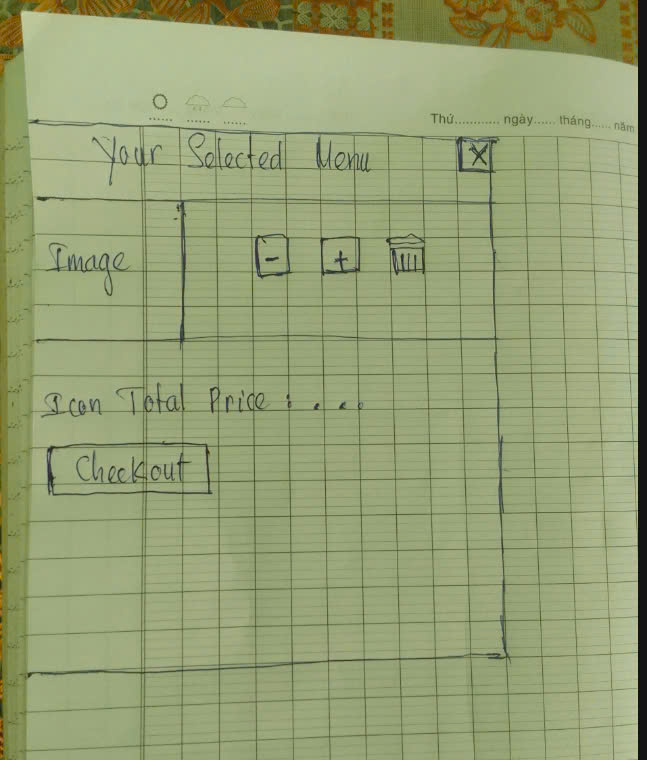 Thứ............ ngày...... tháng...... năm
Your Selected Menu X
Image - +
Icon Total Price : . . . .
Checkout